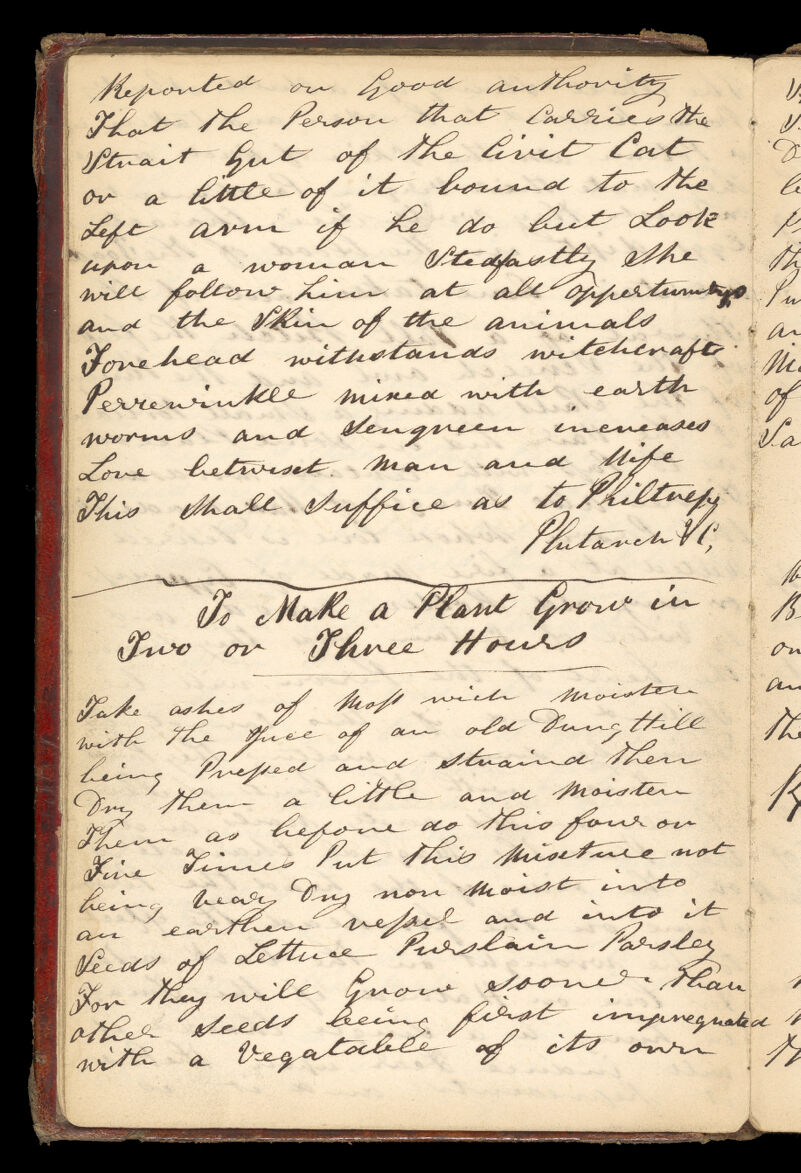 Reported on Good authority
That the Person that Carries the
Strait Gut of the Civit Cat
or a little of it bound to the
Left arm if he do but Look
upon a woman Stedfastly She
will follow him at all
and the Skin of the animals
Forehead withstands witchcraft
Perrewinkle mixed with earth
worms and Sengreen increases
Love betwixt man and Wife
This Shall Suffice as to
Plutarch
To Make a Plant Grow in
Two or Three Hours
Take ashes of Moss wich Moisten
with the Juce of an old Dung Hill
being Pressed and Straind then
Dry them a little and Moisten
Them as before do this four or
Five Times Put this Mixture not
being veary Dry nor Moist into
an earthen vessel and into it
Seeds of Lettuce Purslain Parsley
For they will Grow sooner than
other Seeds being first impregnated
with a Vegatable of its own